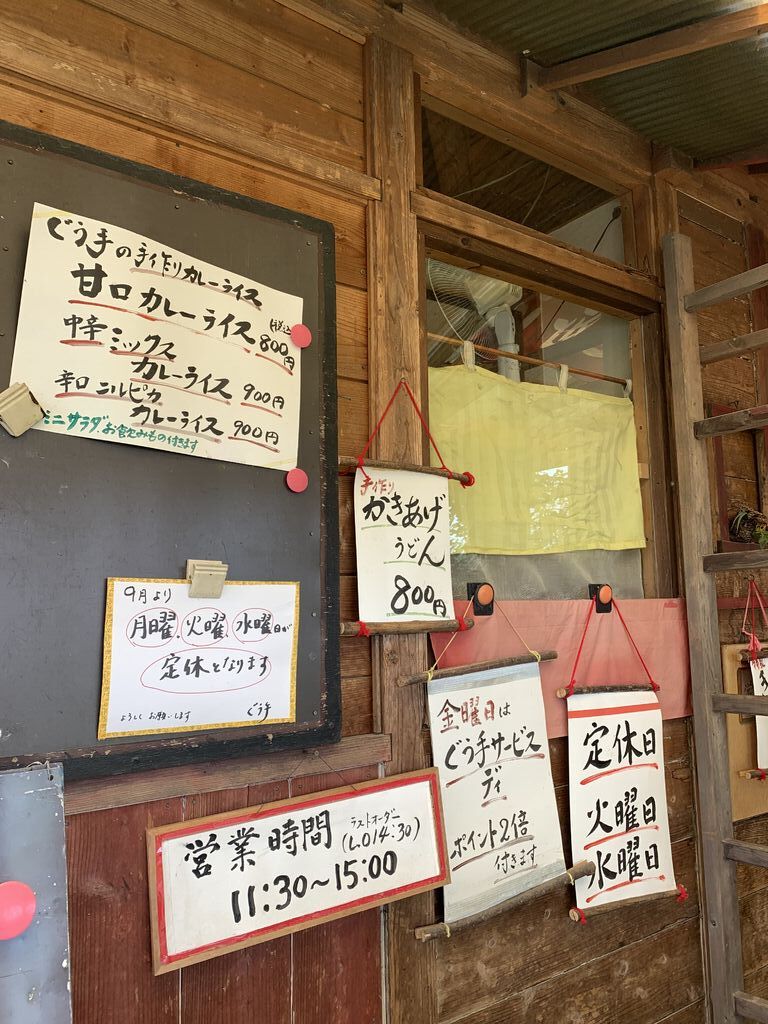 ぐう手の手作りカレーライス
甘口カレーライス 税込 800円
中辛 ミックス
カレーライス 900円
辛口 ニルピカ
カレーライス 900円
ミニサラダ、お飲みもの付きます
9月より
月曜、火曜、水曜日が
定休となります
よろしくお願いします ぐう手
手作り
かきあげ
うどん
800円
営業時間 ラストオーダー (L.O14:30)
11:30〜15:00
金曜日は
ぐう手サービス
ディ
ポイント2倍
付きます
定休日
火曜日
水曜日